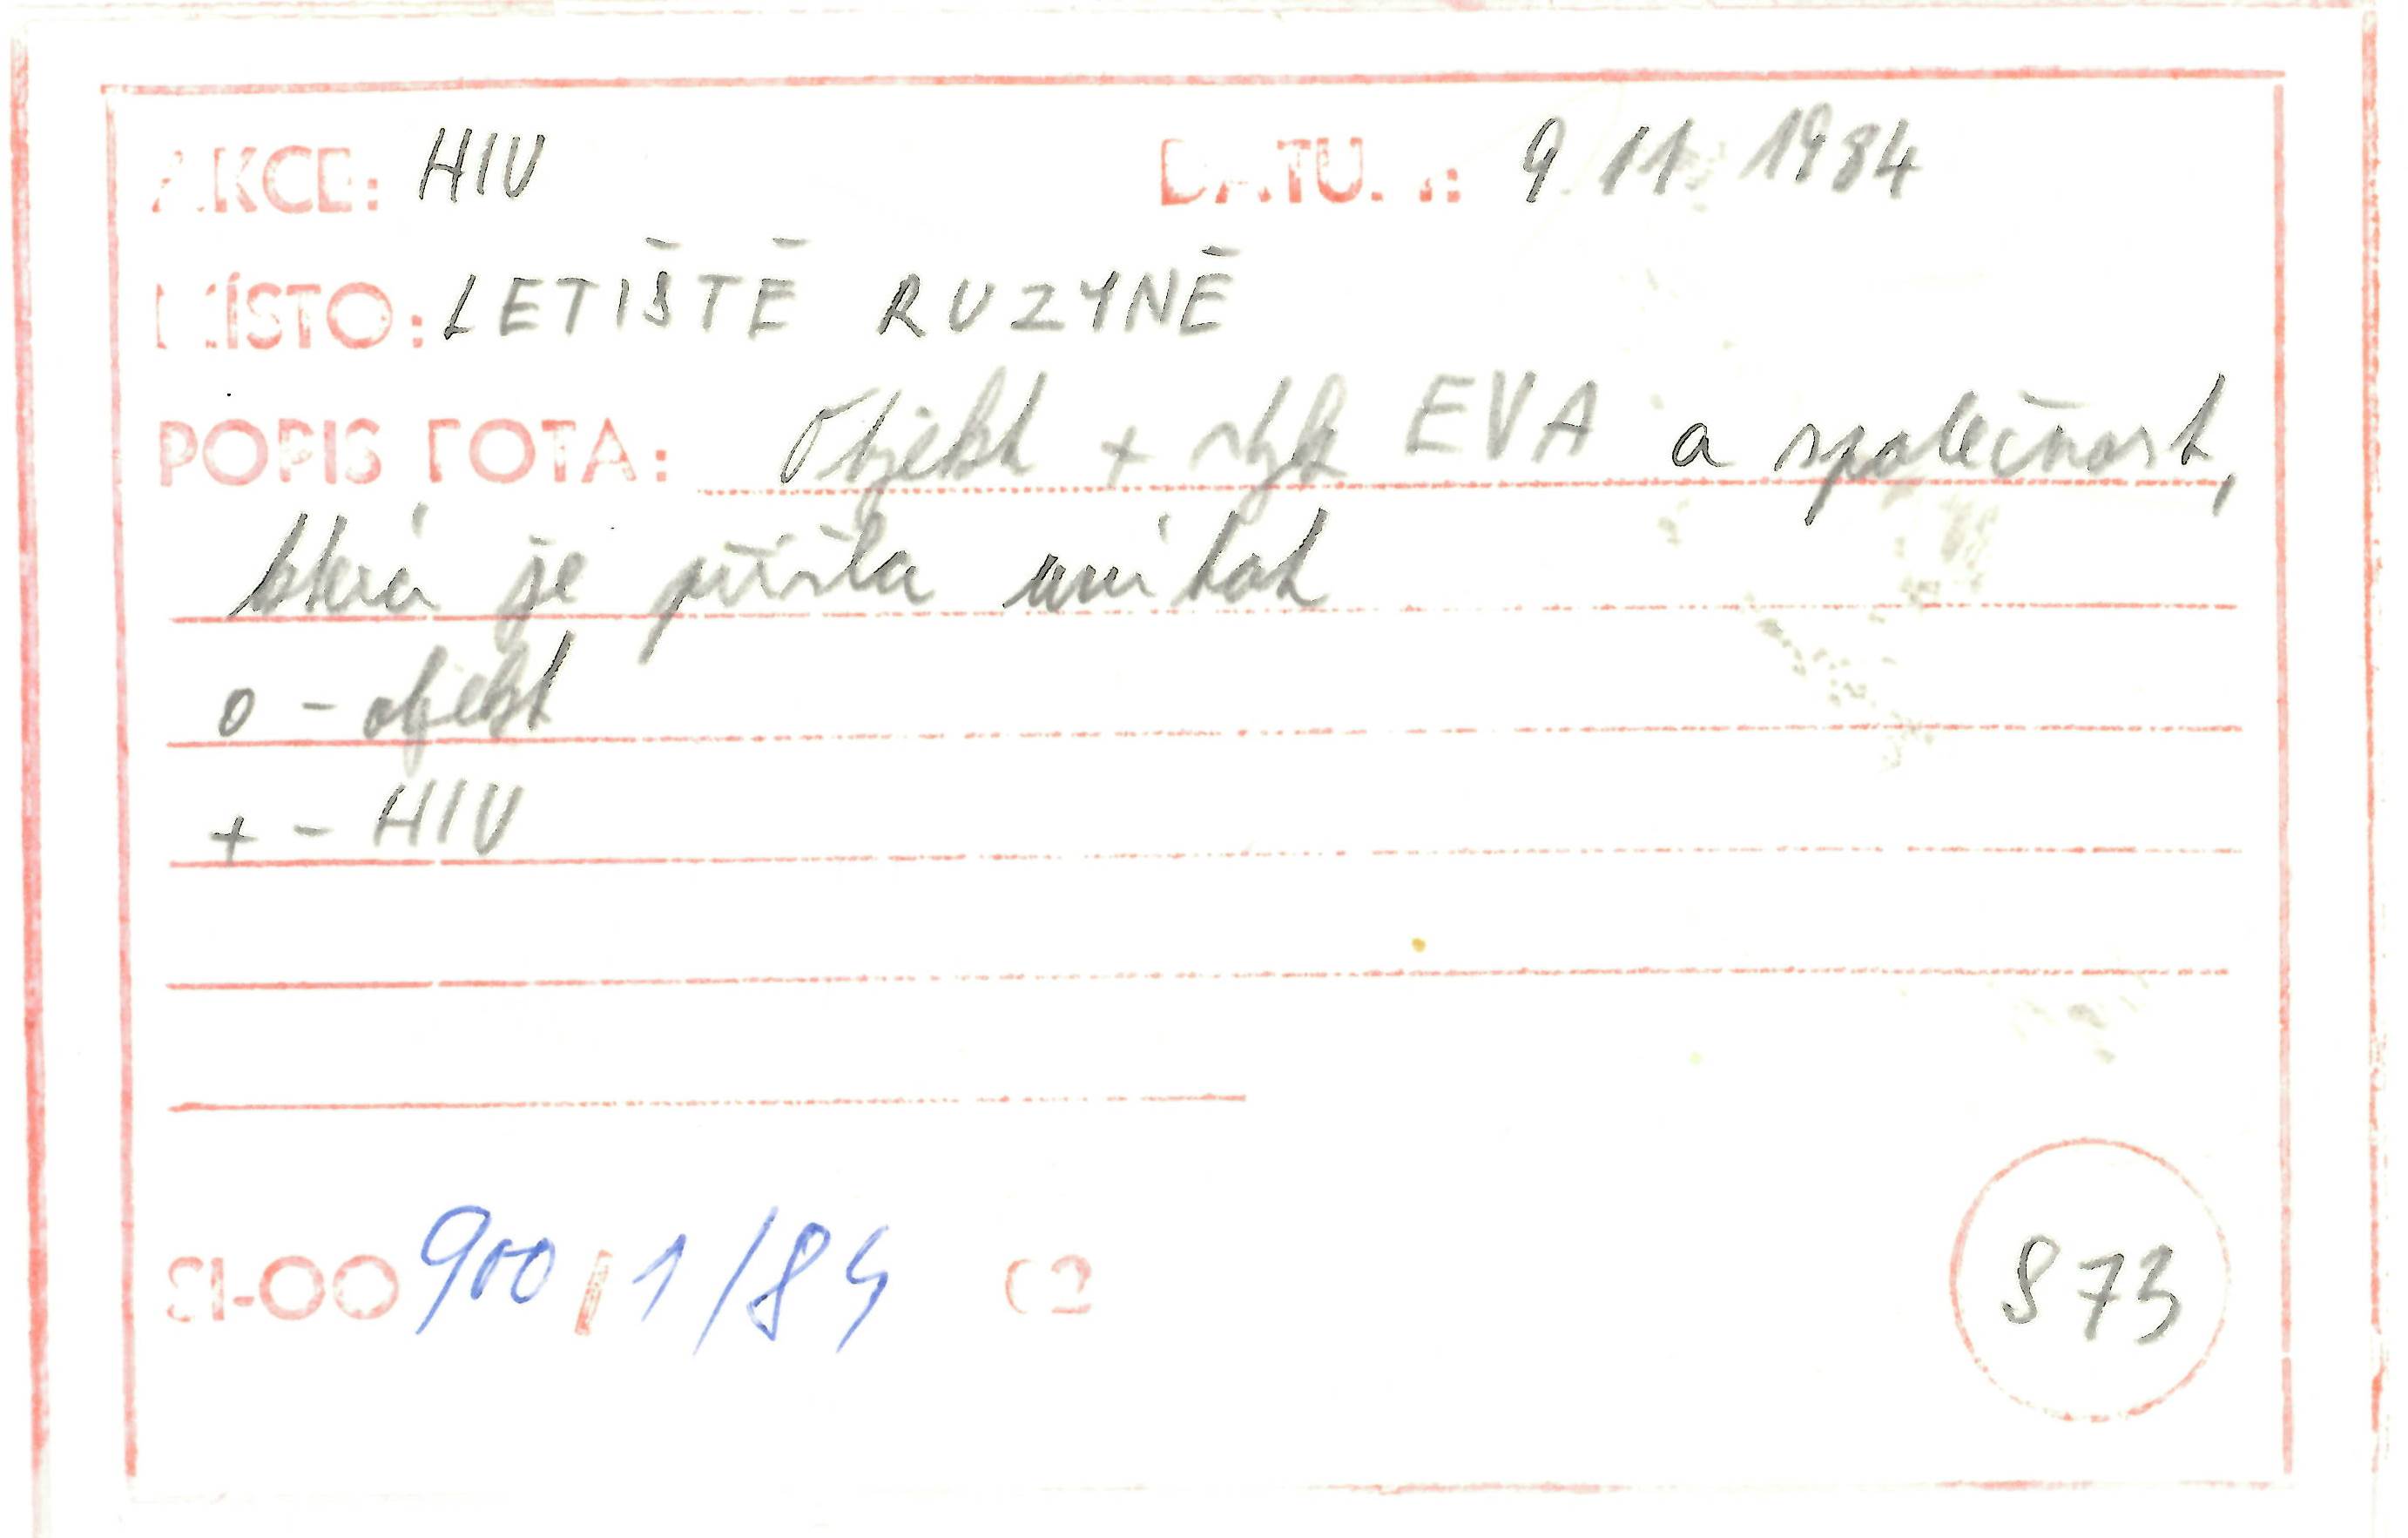 AKCE: HIU DATUM: 9 11 1984
MÍSTO: LETIŠTĚ RUZYNĚ
POPIS FOTA: Objekt + styk EVA a společnost,
která je přišla uvítat
o - objekt
+ - HIU
SI-OO 900 / 1/84 02
873